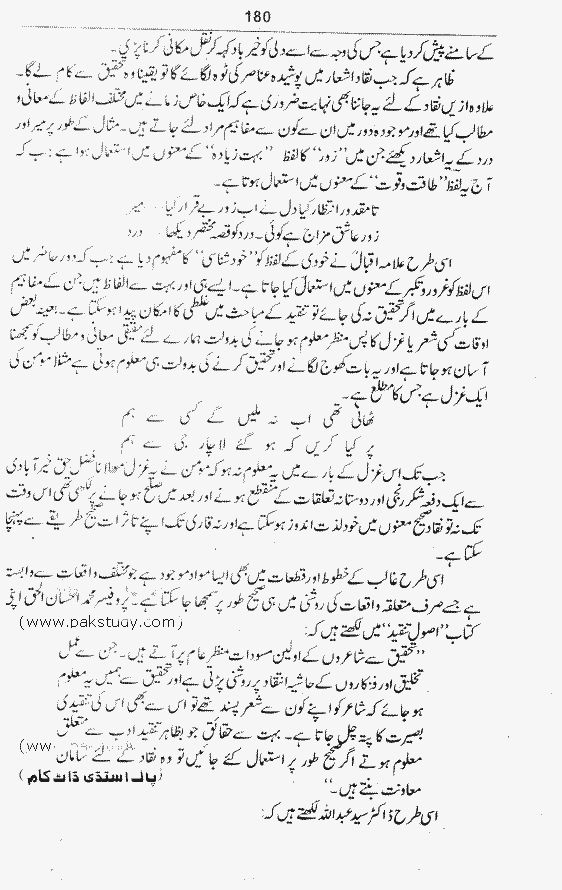 180
کے سامنے پیش کر دیا ہے جس کی وجہ سے اسے دلی کو خیر باد کہہ کر نقل مکانی کرنا پڑی۔
ظاہر ہے کہ جب نقاد اشعار میں پوشیدہ عناصر کی ٹوہ لگائے گا تو یقیناً وہ تحقیق سے کام لے گا۔
علاوہ ازیں نقاد کے لئے یہ جاننا بھی نہایت ضروری ہے کہ ایک خاص زمانے میں مختلف الفاظ کے معانی و
مطالب کیا تھے اور موجودہ دور میں ان سے کون سے مفاہیم مراد لئے جاتے ہیں۔ مثال کے طور پر میر اور
درد کے یہ اشعار دیکھئے جن میں ’’زور‘‘ کا لفظ ’’بہت زیادہ‘‘ کے معنوں میں استعمال ہوا ہے: جب کہ
آج یہ لفظ ’’طاقت و قوت‘‘ کے معنوں میں استعمال ہوتا ہے۔
تا مقدور انتظار کیا دل نے اب زور بے قرار کیا میر
زور عاشق مزاج ہے کوئی۔ درد کو قصہ مختصر دیکھا درد
اسی طرح علامہ اقبال نے خودی کے لفظ کو ’’خود شناسی‘‘ کا مفہوم دیا ہے جب کہ دور حاضر میں
اس لفظ کو غرور و تکبر کے معنوں میں استعمال کیا جاتا ہے۔ ایسے ہی اور بہت سے الفاظ ہیں جن کے مفاہیم
کے بارے میں اگر تحقیق نہ کی جائے تو تنقید کے مباحث میں غلطی کا امکان پیدا ہو سکتا ہے۔ بعینہ بعض
اوقات کسی شعر یا غزل کا پس منظر معلوم ہو جانے کی بدولت ہمارے لئے حقیقی معانی و مطالب کو سمجھنا
آسان ہو جاتا ہے اور یہ بات کھوج لگانے اور تحقیق کرنے کی بدولت ہی معلوم ہوتی ہے مثلاً مومن کی
ایک غزل ہے جس کا مطلع ہے۔
ٹھانی تھی اب نہ ملیں گے کسی سے ہم
پر کیا کریں کہ ہو گئے لاچار جی سے ہم
جب تک اس غزل کے بارے میں یہ معلوم نہ ہو کہ مومن نے یہ غزل مولانا فضل حق خیر آبادی
سے ایک دفعہ شکر رنجی اور دوستانہ تعلقات کے منقطع ہونے اور بعد میں صلح ہو جانے پر لکھی تھی اس وقت
تک نہ تو نقاد صحیح معنوں میں خود لذت اندوز ہو سکتا ہے اور نہ قاری تک اپنے تاثرات صحیح طریقے سے پہنچا
سکتا ہے۔
اسی طرح غالب کے خطوط اور قطعات میں بھی ایسا مواد موجود ہے جو مختلف واقعات سے وابستہ
ہے جسے صرف متعلقہ واقعات کی روشنی میں ہی صحیح طور پر سمجھا جا سکتا ہے۔ پروفیسر محمد احسان الحق اپنی
(www.pakstudy.com) کتاب ’’اصول تنقید‘‘ میں لکھتے ہیں کہ:
’’تحقیق سے شاعروں کے اولین مسودات منظر عام پر آتے ہیں۔ جن سے عمل
تخلیق اور فنکاروں کے حاشیہ انتقاد پر روشنی پڑتی ہے اور تحقیق سے ہمیں یہ معلوم
ہو جائے کہ شاعر کو اپنے کون سے شعر پسند تھے تو اس سے بھی اس کی تنقیدی
بصیرت کا پتہ چل جاتا ہے۔ بہت سے حقائق جو بظاہر تنقید ادب سے متعلق
معلوم ہوتے اگر صحیح طور پر استعمال کئے جائیں تو وہ نقاد کے لئے سامان
معاونت بنتے ہیں۔‘‘
(پاک اسٹڈی ڈاٹ کام)
اسی طرح ڈاکٹر سید عبداللہ لکھتے ہیں کہ: